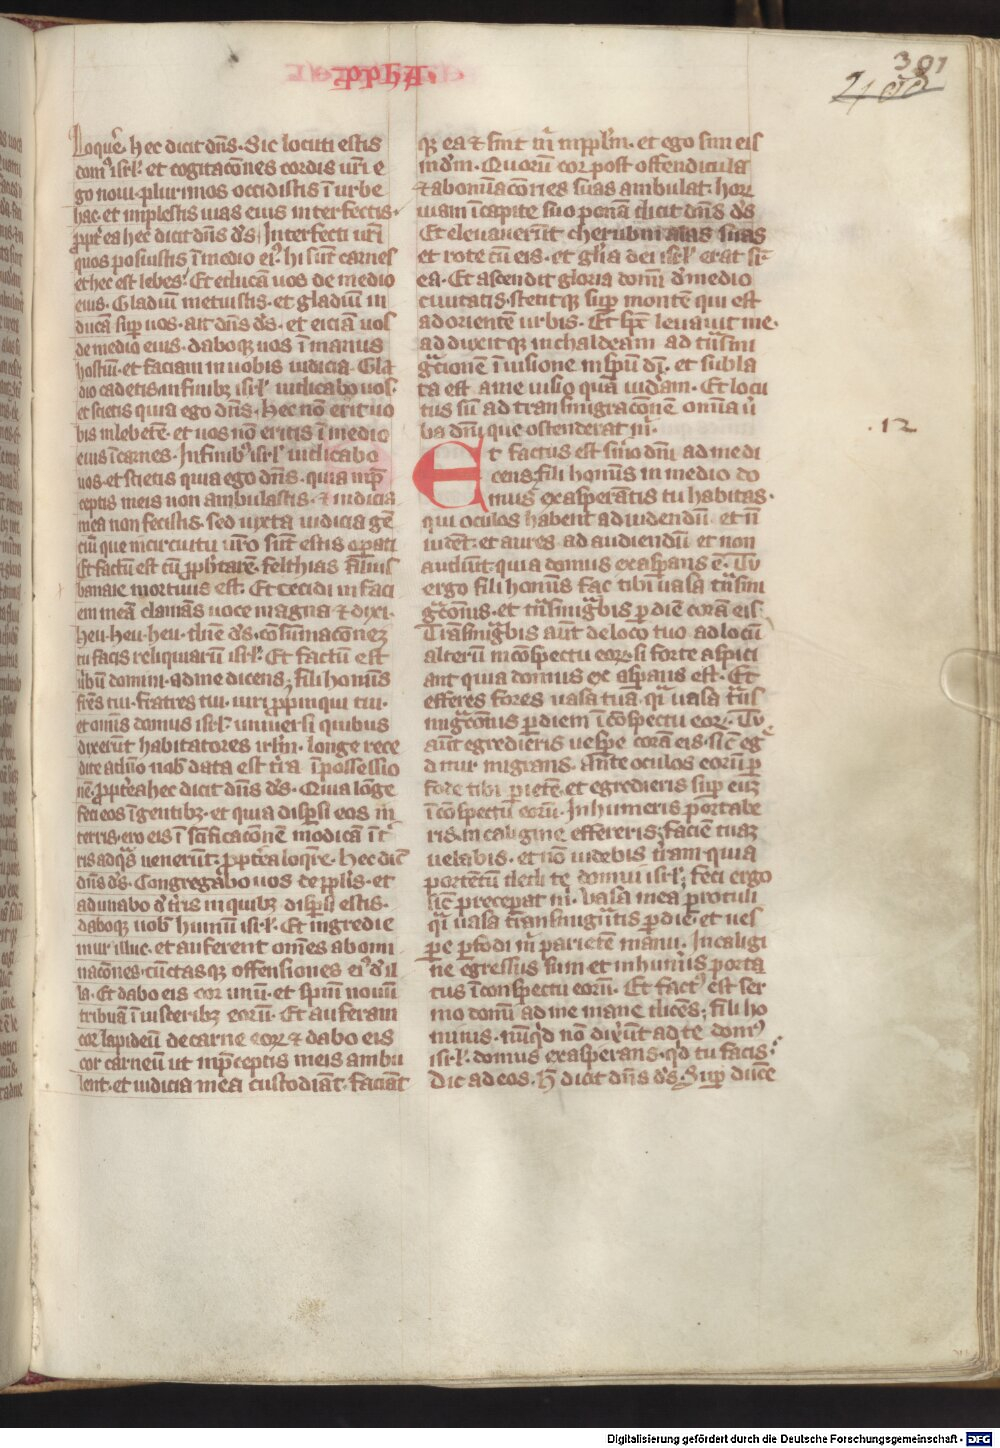 ꝓpħA.
391
Loque͛. hec dicit dn̅s. Sic locuti estis
domꝰ isrl̕. et cogitacōnes cordis ur̅i e
go noui. plurimos occidistis ī urbe
hac. et implestis uias eius interfectis.
ꝓpt̕ ea hec dicit dn̅s d̕s. Interfecti ur̅i
quos posuistis ī medio eiꝰ. hi sūt carnes
et hec est lebes. Et educā uos de medio
eius. Gladiū metuistis. et gladiū in
ducā suꝑ uos. ait dn̅s d̕s. et eiciā uos
de medio eius. daboqꝫ uos ī manus
hostiū. et faciam in uobis iudicia. Gla
dio cadetis. in finibꝫ isrl̕. iudicabo uos.
et scietis quia ego dn̅s. Hec nō erit uo
bis in lebetē. et uos nō eritis ī medio
eius ī carnes. In finibꝰ isrl̕. iudicabo
uos. et scietis quia ego dn̅s. quia in p̅
ceptis meis non ambulastis. & iudicia
mea non fecistis. sed iuxta iudicia gē
ciū que in circuitu ur̅o sūt estis oꝑati
Et factū est cū ꝓph̕tarē. felthias filius
banaie mortuus est. Et cecidi in faci
em meā clamās uoce magna & dixi.
heu. heu. heu. dn̅e d̕s. cōsūmacōneꝫ
tu facis reliquiarū isrl̕. Et factū est
ūbū domini. ad me dicens; fili hominis
fr̅es tui. fratres tui. uiri ꝓpinqui tui.
et omnis domus isrl̕. uniuersi quibus
dixerūt habitatores irl̅m. longe rece
dite a dn̅o nob̅ data est t̅ra ī possessio
nē. ꝓpt̕ea hec dicit dn̅s d̕s. Quia lōge
feci eos ī gentibꝫ. et quia disꝑsi eos in
terris. ero eis ī sc̅ificacōnem modicā ī t̕
ris ad qͣs uenerūt. ꝓpt̕ea loqr̅e. Hec dic̅
dn̅s d̕s. Congregabo uos de ppl̅is. et
adunabo d̕ t̕ris in quibꝫ disꝑsi estis.
daboqꝫ uob̅ humū isrl̕. Et ingredie
mur illuc. et auferent om̅es abomi
nacōnes. cūctasqꝫ offensiones eiꝰ d̕ il
la. Et dabo eis cor unū. et sp̅m nouū
tribuā ī uisceribꝫ eorū. Et auferam
cor lapideū de carne eoꝝ & dabo eis
cor carneū ut in p̅ceptis meis ambu
lent. et iudicia mea custodiāt. faciāt
qꝫ ea & sint m̕ in ppl̅m. et ego sim eis
in d̅m. Quorū cor post offendicula
& abominacōnes suas ambulat. hoꝝ
uiam ī capite suo ponā dicit dn̅s d̕s
Et eleuauerūt cherubin alas suas
et rote cū eis. et gl̅ia dei isrl̕ erat suꝑ
ea. Et ascendit gloria domī d̕ medio
ciuitatis. stetitqꝫ suꝑ montē qui est
ad orientē urbis. Et sp̅c leuauit me.
adduxitqꝫ in chaldeam ad trāsmi
gͣcionē ī uisione in sp̅u dī. et subla
ta est a me uisio quā uidam. Et locu
tus sū ad transmigracōnē omnia ū
ba dn̅i que ostenderat m̕.
.12
Et factus est sīmo dn̅i ad me di
cens; fili hominis in medio do
mus exasperātis tu habitas.
qui oculos habent ad uidendū. et n̅
uidēt. et aures ad audiendū et non
audiūt. quia domus exasꝑans ē. Tu
ergo fili hominis fac tibi uasa trāsmi
gͣcōnis. et trāsmigͣbis ꝑ diē corā eis.
Trāsmigͣbis aūt de loco tuo ad locū
alterū in cōspectu eoꝝ. si forte aspici
ant quia domus exasꝑans est. Et
efferes foras uasa tua. qͣi uasa trās
migͣcōnis ꝑ diem ī cōspectu eoꝝ. Tu
aūt egredieris uesꝑe corā eis. sic̅ egͤ
ditur migrans. Ante oculos eorū ꝑ
fode tibi parietē. et egredieris suꝑ euꝫ
ī cōspectu eorū. In humeris portabe
ris. in caligine effereris; faciē tuaꝫ
uelabis. et nō uidebis t̕ram. quia
portentū dedi te domui isrl̕; feci ergo
sic̅ preceperat m̕. Uasa mea protuli
qͣi uasa transmigͣntis ꝑ diē. et ues
ꝑe ꝑfodi m̕ parietē manu. In caligi
ne egressus sum et in humeris porta
tus ī conspectu eorū. Et factꝰ est ser
mo domī ad me mane dicēs; fili ho
minis. nūqͥd nō dixerūt ad te domꝰ
isrl̕. domus exasperans. qͥd tu facis.
Dic ad eos. H̅ dicit dn̅s d̕s. Suꝑ duce
Digitalisierung gefördert durch die Deutsche Forschungsgemeinschaft - DFG